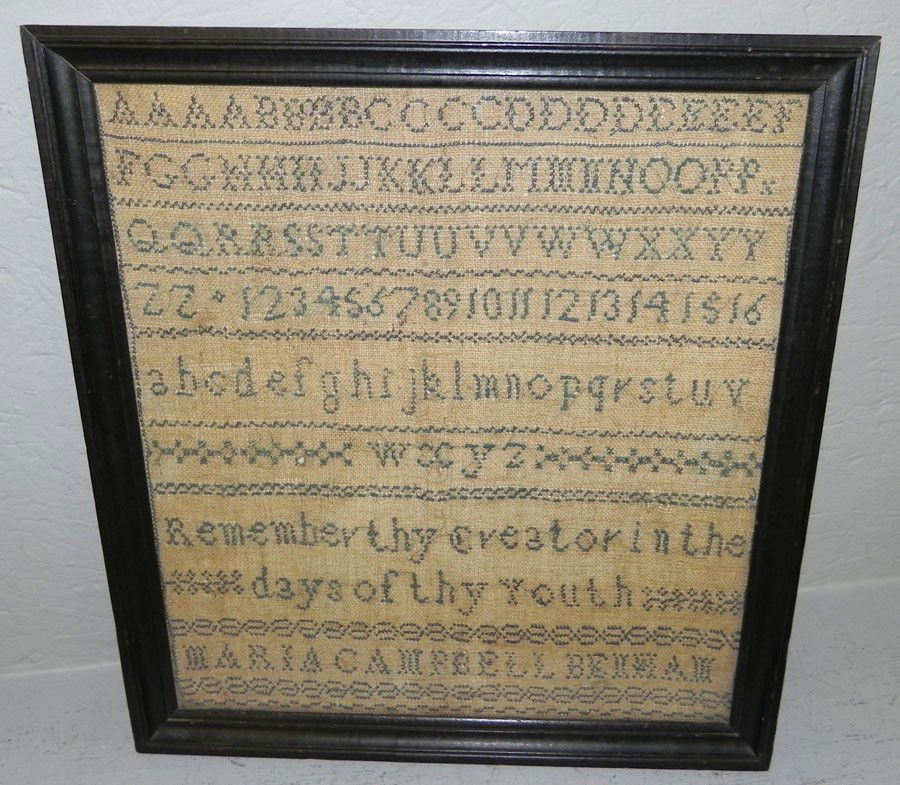 AAAABBBBCCCCDDDDEEEEF
FGGHHHJJKKLLMMMNOOPP
QQRRSSTTUUVVWWXXYY
ZZ 1 2 3 4 5 6 7 8 9 10 11 12 13 14 15 16
abcdefghijklmnopqrstuv
wxyz
Remember thy Creator in the
days of thy Youth
MARIA CAMPBELL